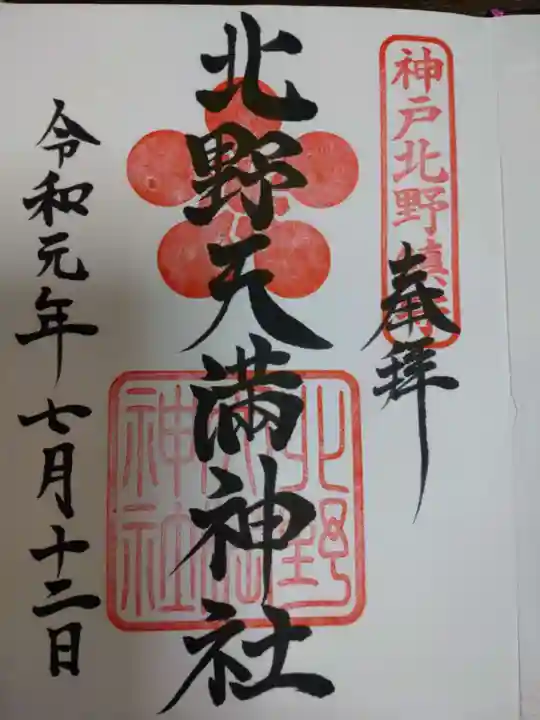 神戸北野鎮守
奉拝
北野天満神社
北野天満神社
令和元年七月十二日